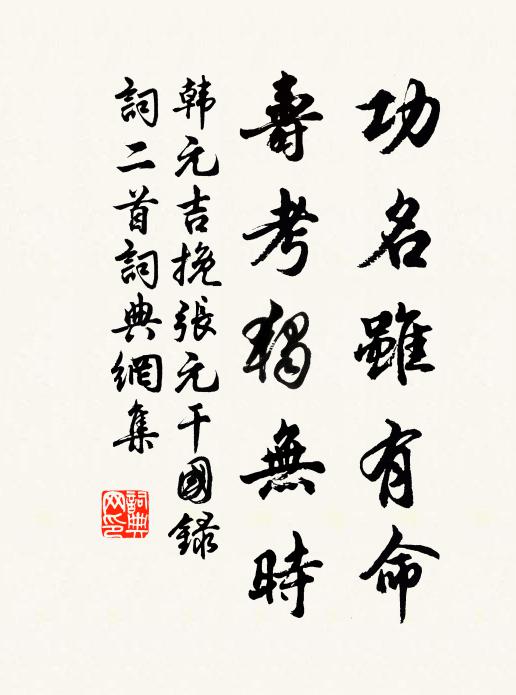 功名雖有命
壽考獨無時
韓元吉挽張元干國録
詞二首詞典網集
詞典网印